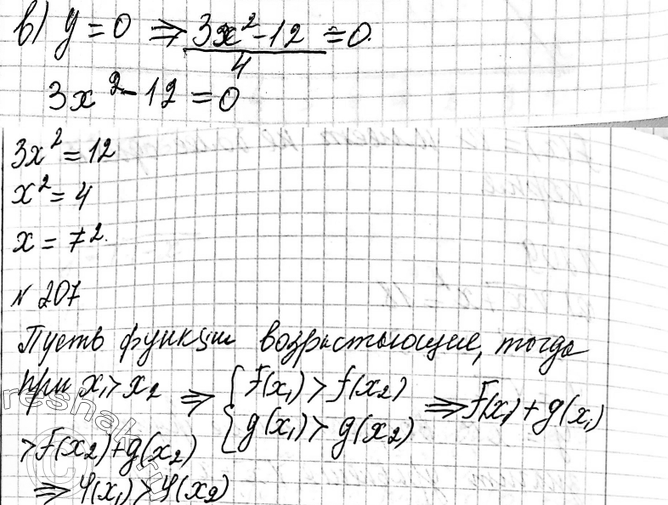 в) y = 0 ⇒ (3x² - 12)/4 = 0.
3x² - 12 = 0
3x² = 12
x² = 4
x = ∓2.
N 207
Пусть функции возрастающие, тогда
при x₁ > x₂ ⇒ { F(x₁) > f(x₂) ⇒ F(x₁) + g(x₁)
{ g(x₁) > g(x₂)
> F(x₂) + g(x₂)
⇒ φ(x₁) > φ(x₂)